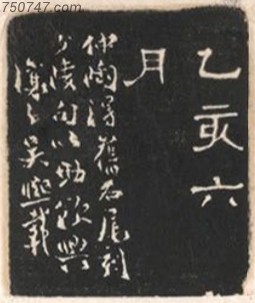 750747.com
乙亥六
月
仲陶得舊石屬刻
少陵句以助歙興
讓之吳熙載